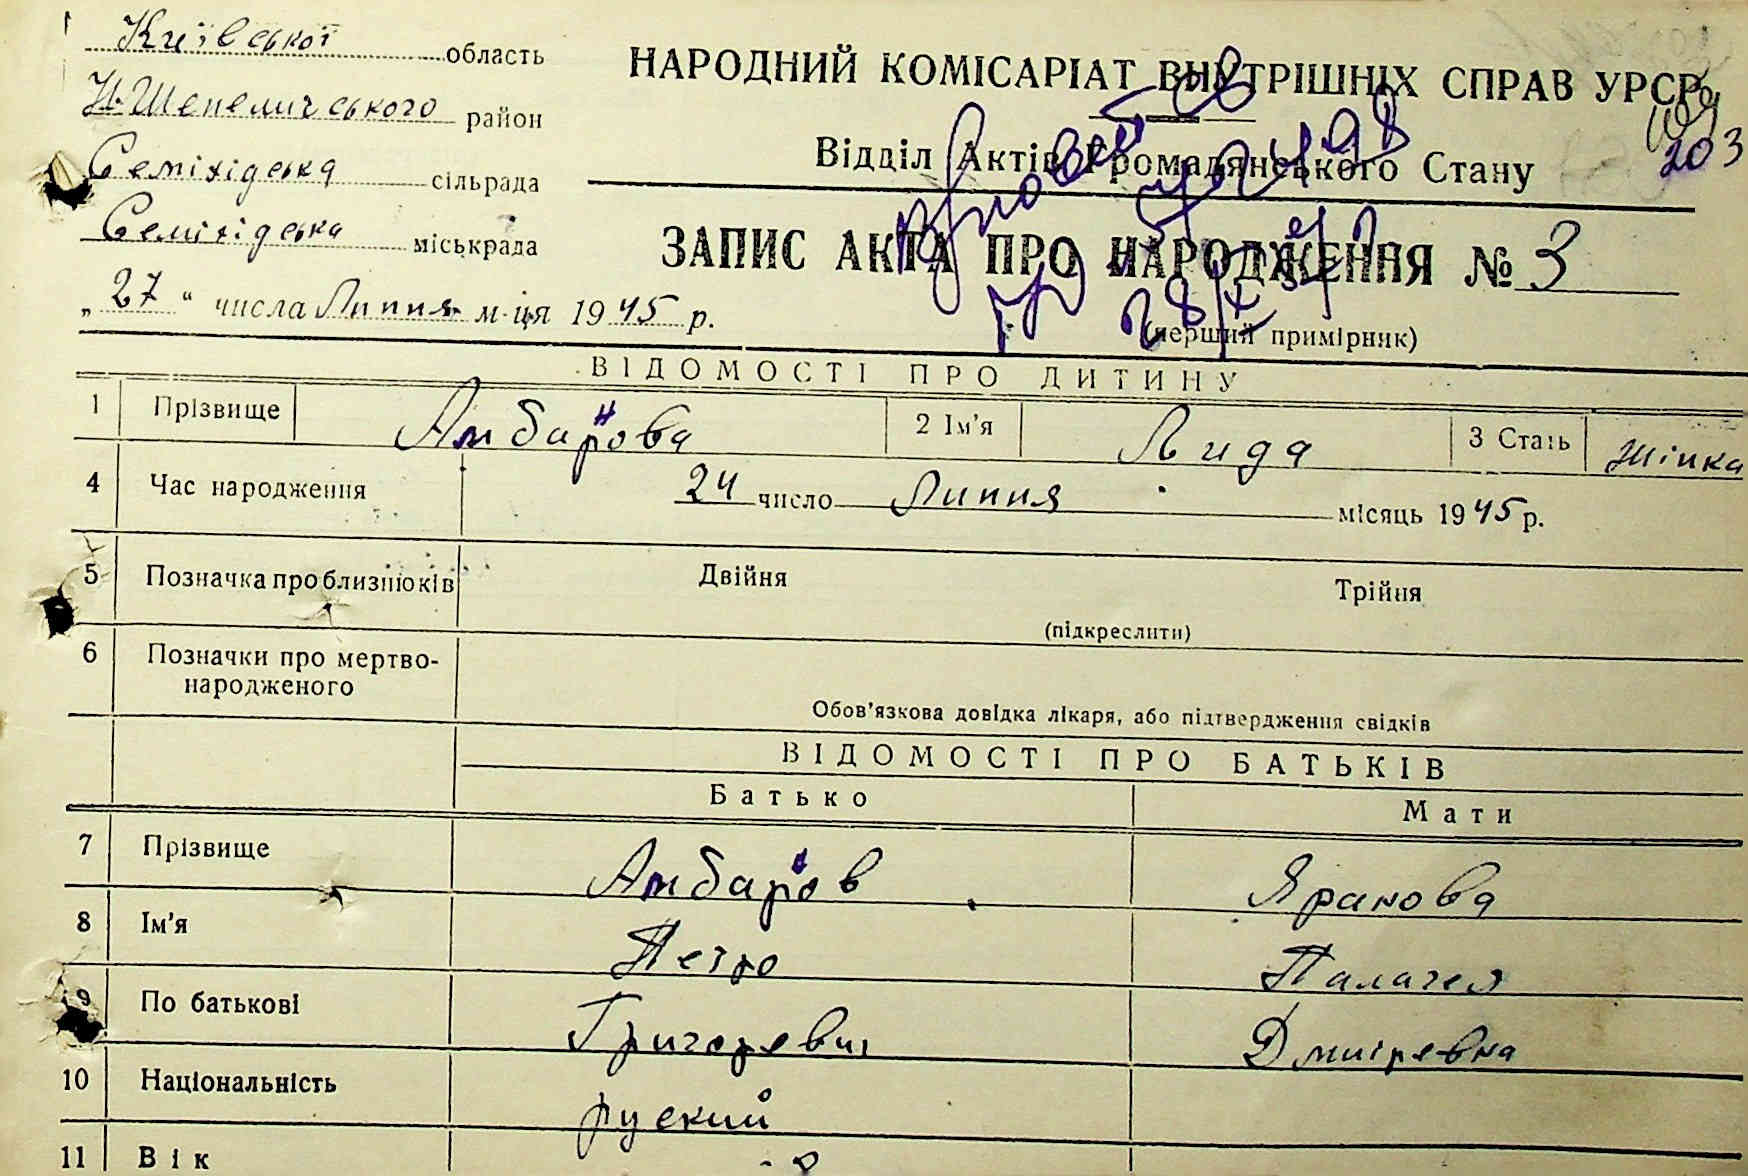 Київської область
Н-Шепеличського район
Семіхідська сільрада
Семіхідська міськрада
„ 27 “ числа Липня м-ця 1945 р.
НАРОДНИЙ КОМІСАРІАТ ВНУТРІШНІХ СПРАВ УРСР
Відділ Актів Громадянського Стану
203
ЗАПИС АКТА ПРО НАРОДЖЕННЯ № 3
(перший примірник)
ВІДОМОСТІ ПРО ДИТИНУ
1 Прізвище Амбарова 2 Ім'я Лида 3 Стать жінка
4 Час народження 24 число Липня місяць 1945 р.
5 Позначка про близнюків Двійня Трійня
(підкреслити)
6 Позначки про мертво-
народженого
Обов'язкова довідка лікаря, або підтвердження свідків
ВІДОМОСТІ ПРО БАТЬКІВ
Батько Мати
7 Прізвище Амбаров Ярамова
8 Ім'я Петро Палагея
9 По батькові Григоревич Дмитревна
10 Національність руский
11 Вік